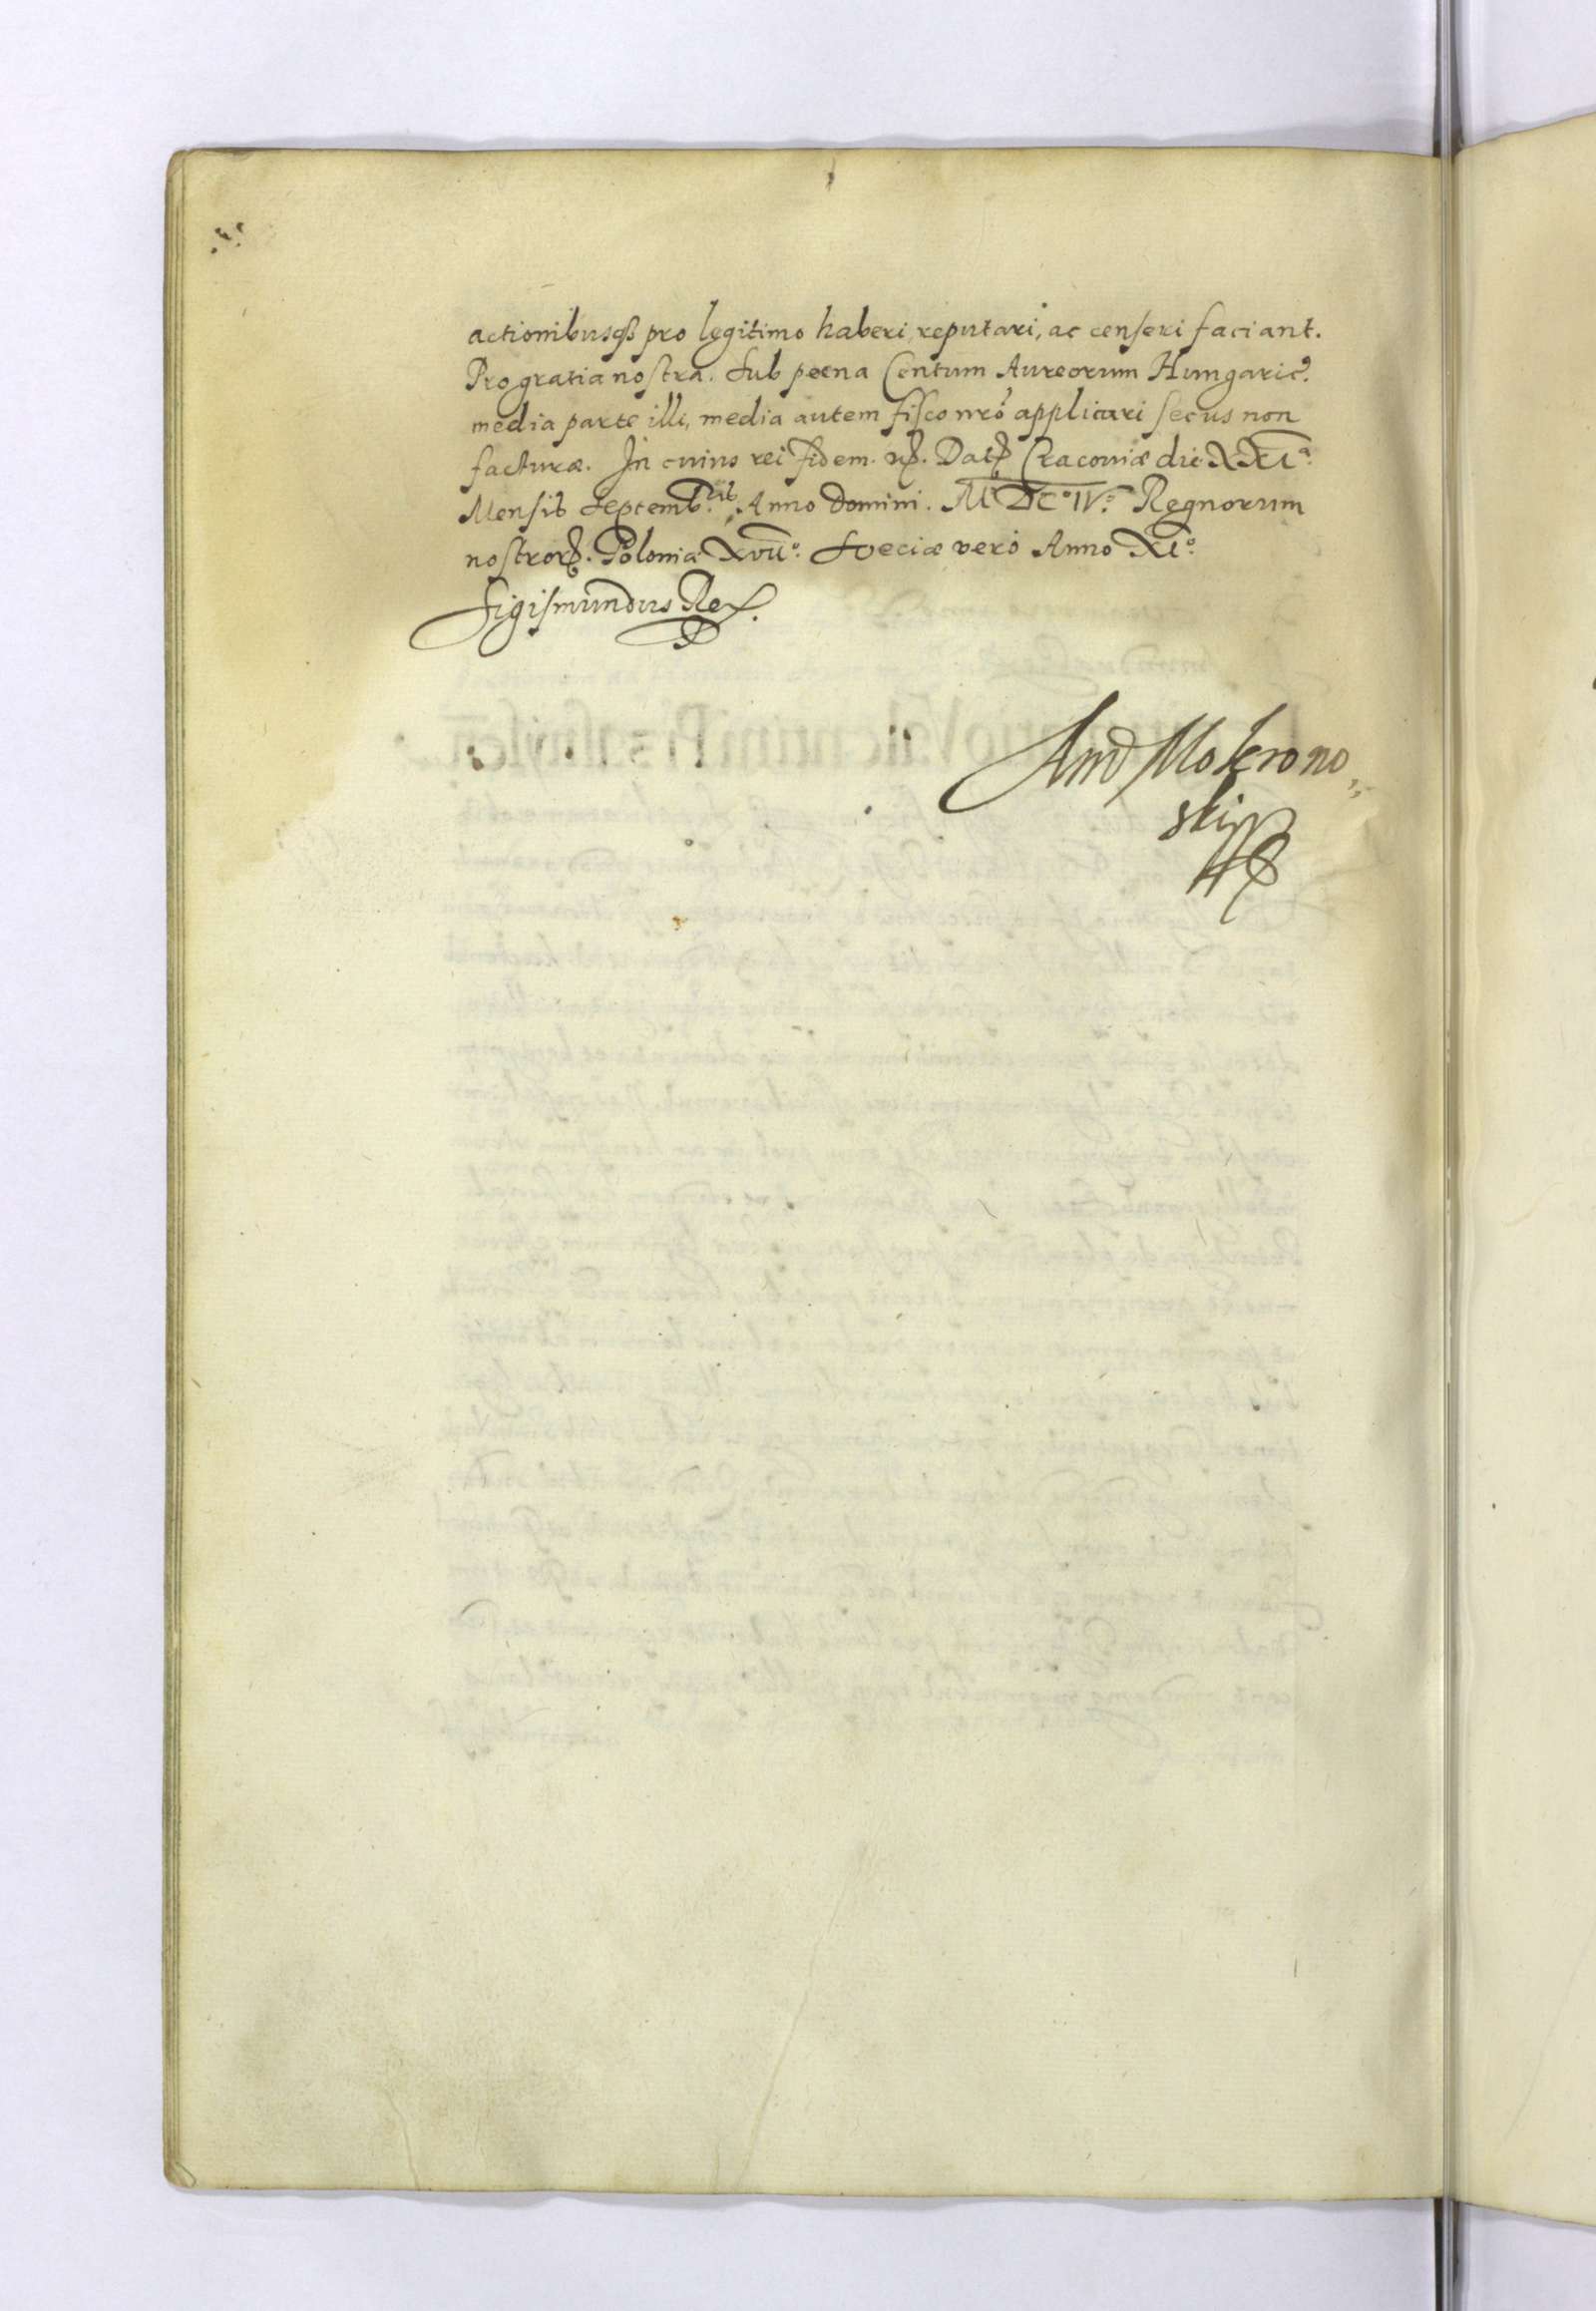 actionibusqȝ pro legitimo haberi, reputari, ac censeri faciant.
Pro gratia nostra. Sub poena Centum Aureorum Hungaric.
media parte illi, media autem fisco nrō applicari secus non
facturæ. In cuius rei fidem. Datꝭ Cracoviæ die XXI.ª
Mensis Septemb.ris Anno Domini. M.DC.IV.º Regnorum
nostrorꝝ. Poloniæ XVII.º Sveciæ vero Anno XI.º
Sigismundus Rex.
And Mokrono„
ski